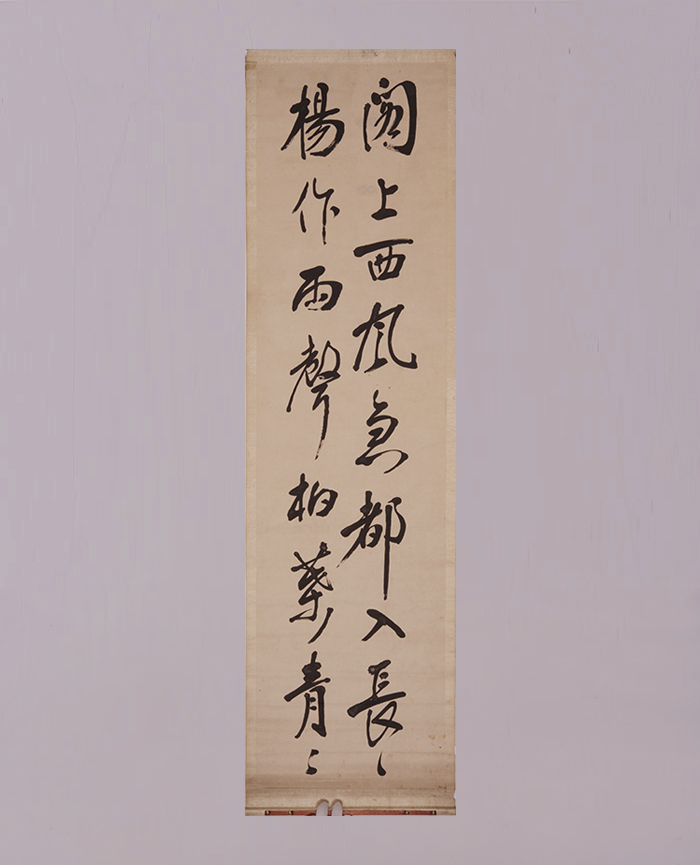 閣上西風急都入長〻
楊作雨聲柏葉青〻